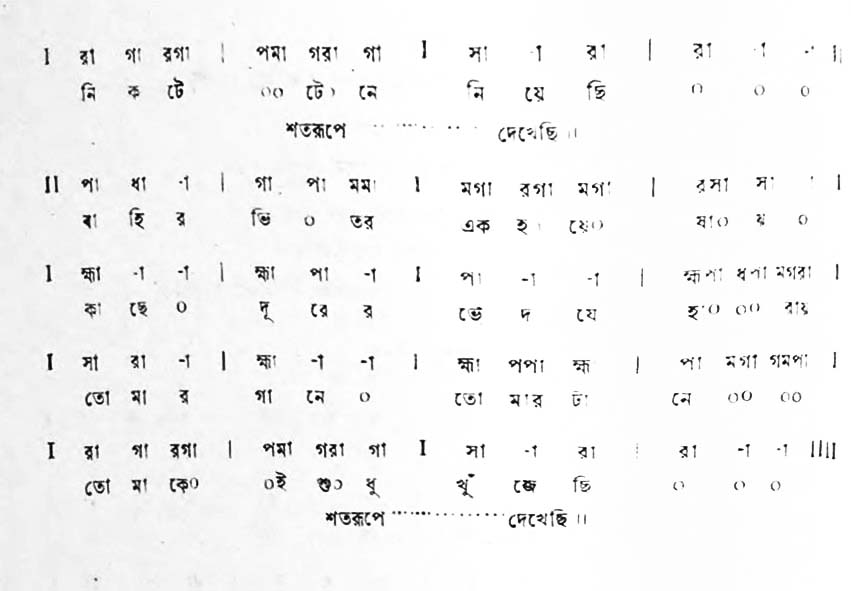 I রা গা রগা | পমা গরা গা I সা -া রা | রা -া -া II
নি ক টে ০০ টে০ নে নি য়ে ছি ০ ০ ০
শতরূপে ............ দেখেছি ॥
II পা ধা -া | গা পা মমা I মগা রগা মগা | রসা সা -া I
বা হি র ভি ০ তর এক হ০ য়ে০ যা০ য় ০
I হ্মা -া -া | হ্মা পা -া I পা -া -া | হ্মপা ধপা মগরা I
কা ছে ০ দূ রে র ভে দ যে হা০ ০০ রায়
I সা রা -া | হ্মা -া -া I হ্মা পপা হ্ম | পা মগা গমপা I
তো মা র গা নে ০ তো মার টা নে ০০ ০০
I রা গা রগা | পমা গরা গা I সা -া রা | রা -া -া IIII
তো মা কে০ ০ই শু০ ধু খুঁ জে ছি ০ ০ ০
শতরূপে ............... দেখেছি ॥